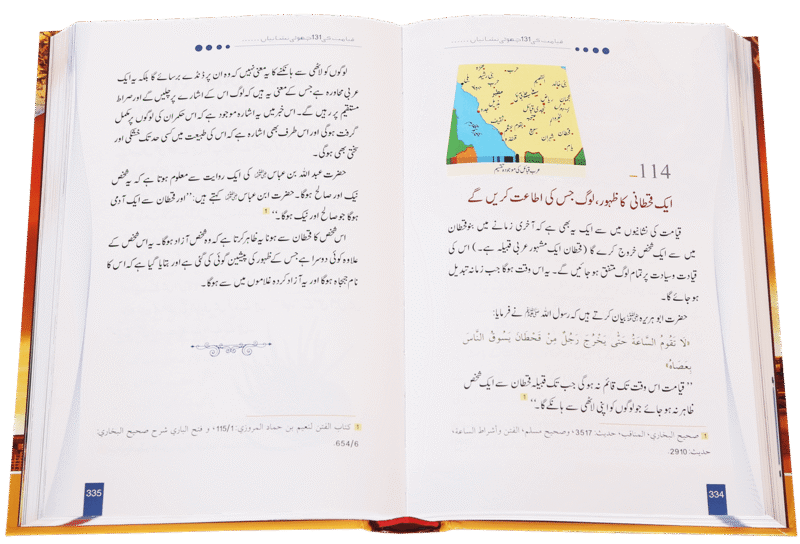 114
ایک قحطانی کا ظہور، لوگ جس کی اطاعت کریں گے
قیامت کی نشانیوں میں سے ایک یہ بھی ہے کہ آخری زمانے میں بنو قحطان
میں سے ایک شخص خروج کرے گا (قحطان ایک مشہور عربی قبیلہ ہے۔) اس کی
قیادت و سیادت پر تمام لوگ متفق ہو جائیں گے۔ یہ اس وقت ہوگا جب زمانہ تبدیل
ہو جائے گا۔
حضرت ابو ہریرہ رضی اللہ عنہ بیان کرتے ہیں کہ رسول اللہ ﷺ نے فرمایا:
«لَا تَقُومُ السَّاعَةُ حَتَّى يَخْرُجَ رَجُلٌ مِنْ قَحْطَانَ يَسُوقُ النَّاسَ
بِعَصَاهُ»
"قیامت اس وقت تک قائم نہ ہوگی جب تک قبیلہ قحطان سے ایک شخص
ظاہر نہ ہو جائے جو لوگوں کو اپنی لاٹھی سے ہانکے گا۔" 1
1 صحيح البخاري، المناقب، حديث: 3517، وصحيح مسلم، الفتن وأشراط الساعة،
حديث: 2910.
334
لوگوں کو لاٹھی سے ہانکنے کا یہ معنی نہیں کہ وہ ان پر ڈنڈے برسائے گا بلکہ یہ ایک
عربی محاورہ ہے جس کے معنی یہ ہیں کہ لوگ اس کے اشارے پر چلیں گے اور صراط
مستقیم پر رہیں گے۔ اس خبر میں یہ اشارہ موجود ہے کہ اس حکمران کی لوگوں پر مکمل
گرفت ہوگی اور اس طرف بھی اشارہ ہے کہ اس کی طبیعت میں کسی حد تک خشکی اور
سختی بھی ہوگی۔
حضرت عبد اللہ بن عباس رضی اللہ عنہما کی ایک روایت سے معلوم ہوتا ہے کہ یہ شخص
نیک اور صالح ہوگا۔ حضرت ابن عباس رضی اللہ عنہما کہتے ہیں: "اور قحطان سے ایک آدمی
ہوگا جو صالح اور نیک ہوگا۔" 1
اس شخص کا قحطان سے ہونا یہ ظاہر کرتا ہے کہ وہ شخص آزاد ہوگا۔ یہ اس شخص کے
علاوہ کوئی دوسرا ہے جس کے ظہور کی پیشین گوئی کی گئی ہے اور بتایا گیا ہے کہ اس کا
نام جہجاہ ہوگا اور یہ آزاد کردہ غلاموں میں سے ہوگا۔
1 كتاب الفتن لنعيم بن حماد المروزي: 115/1، و فتح الباري شرح صحيح البخاري:
654/6.
335